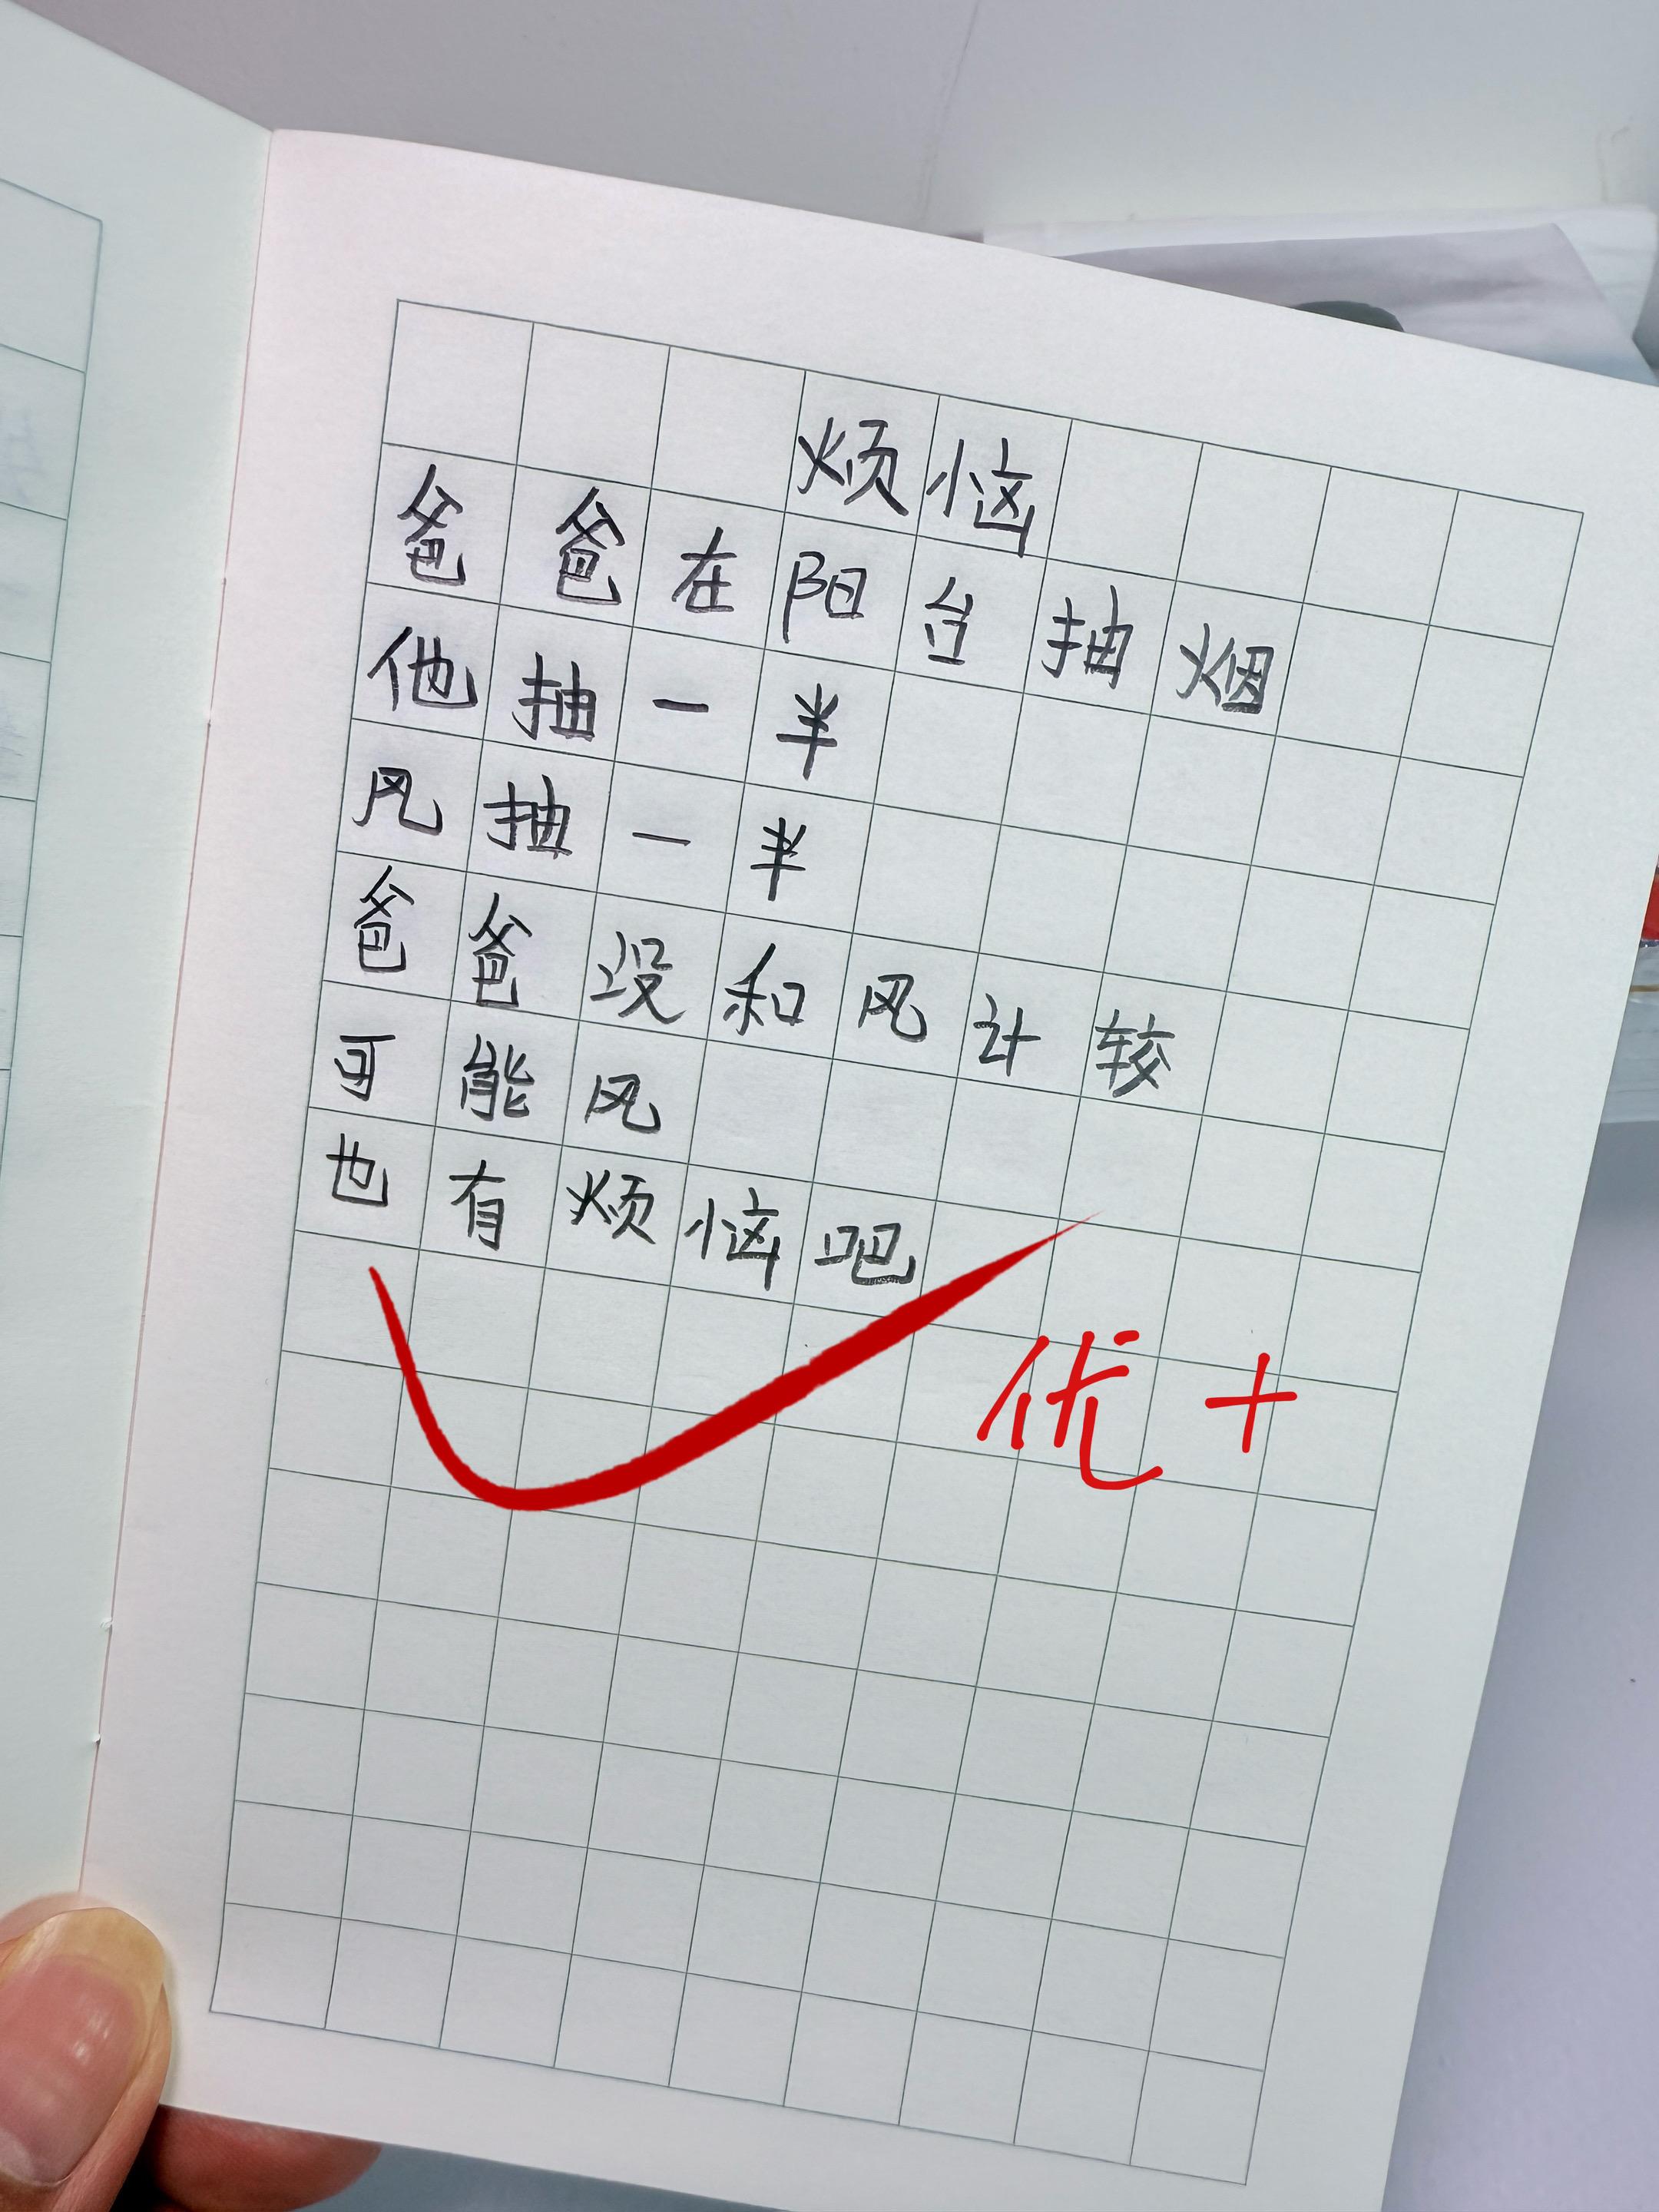 烦恼
爸爸在阳台抽烟
他抽一半
风抽一半
爸爸没和风计较
可能风
也有烦恼吧
优+